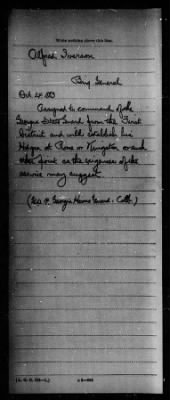 Write nothing above this line.
Alfred Iverson
Brig General
Oct. 24. 1863
Assigned to command of the
Georgia State Guard from the First
District and will establish his
Hdqrs at Rome or Kingston or such
other point as the exigencies of the
service may suggest.
Georgia Home Guard